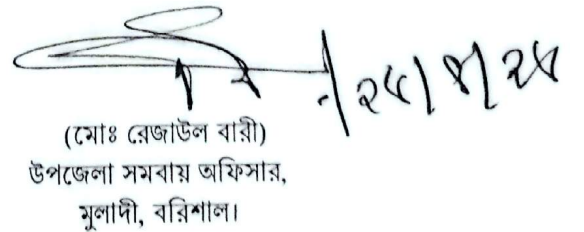 ২৫/৪/২৫
(মোঃ রেজাউল বারী)
উপজেলা সমবায় অফিসার,
মুলাদী, বরিশাল।